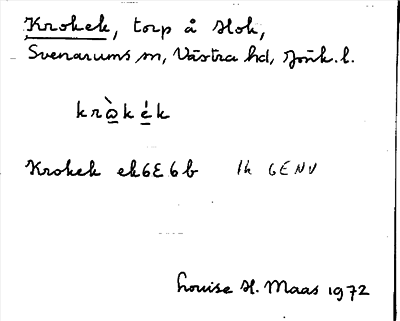 Krokek, torp å Hok,
Svenarums sn, Västra hd, Jönk. l.
krò̱ké̱k
Krokek ek6E6b 1h 6E NV
Louise H. Maas 1972